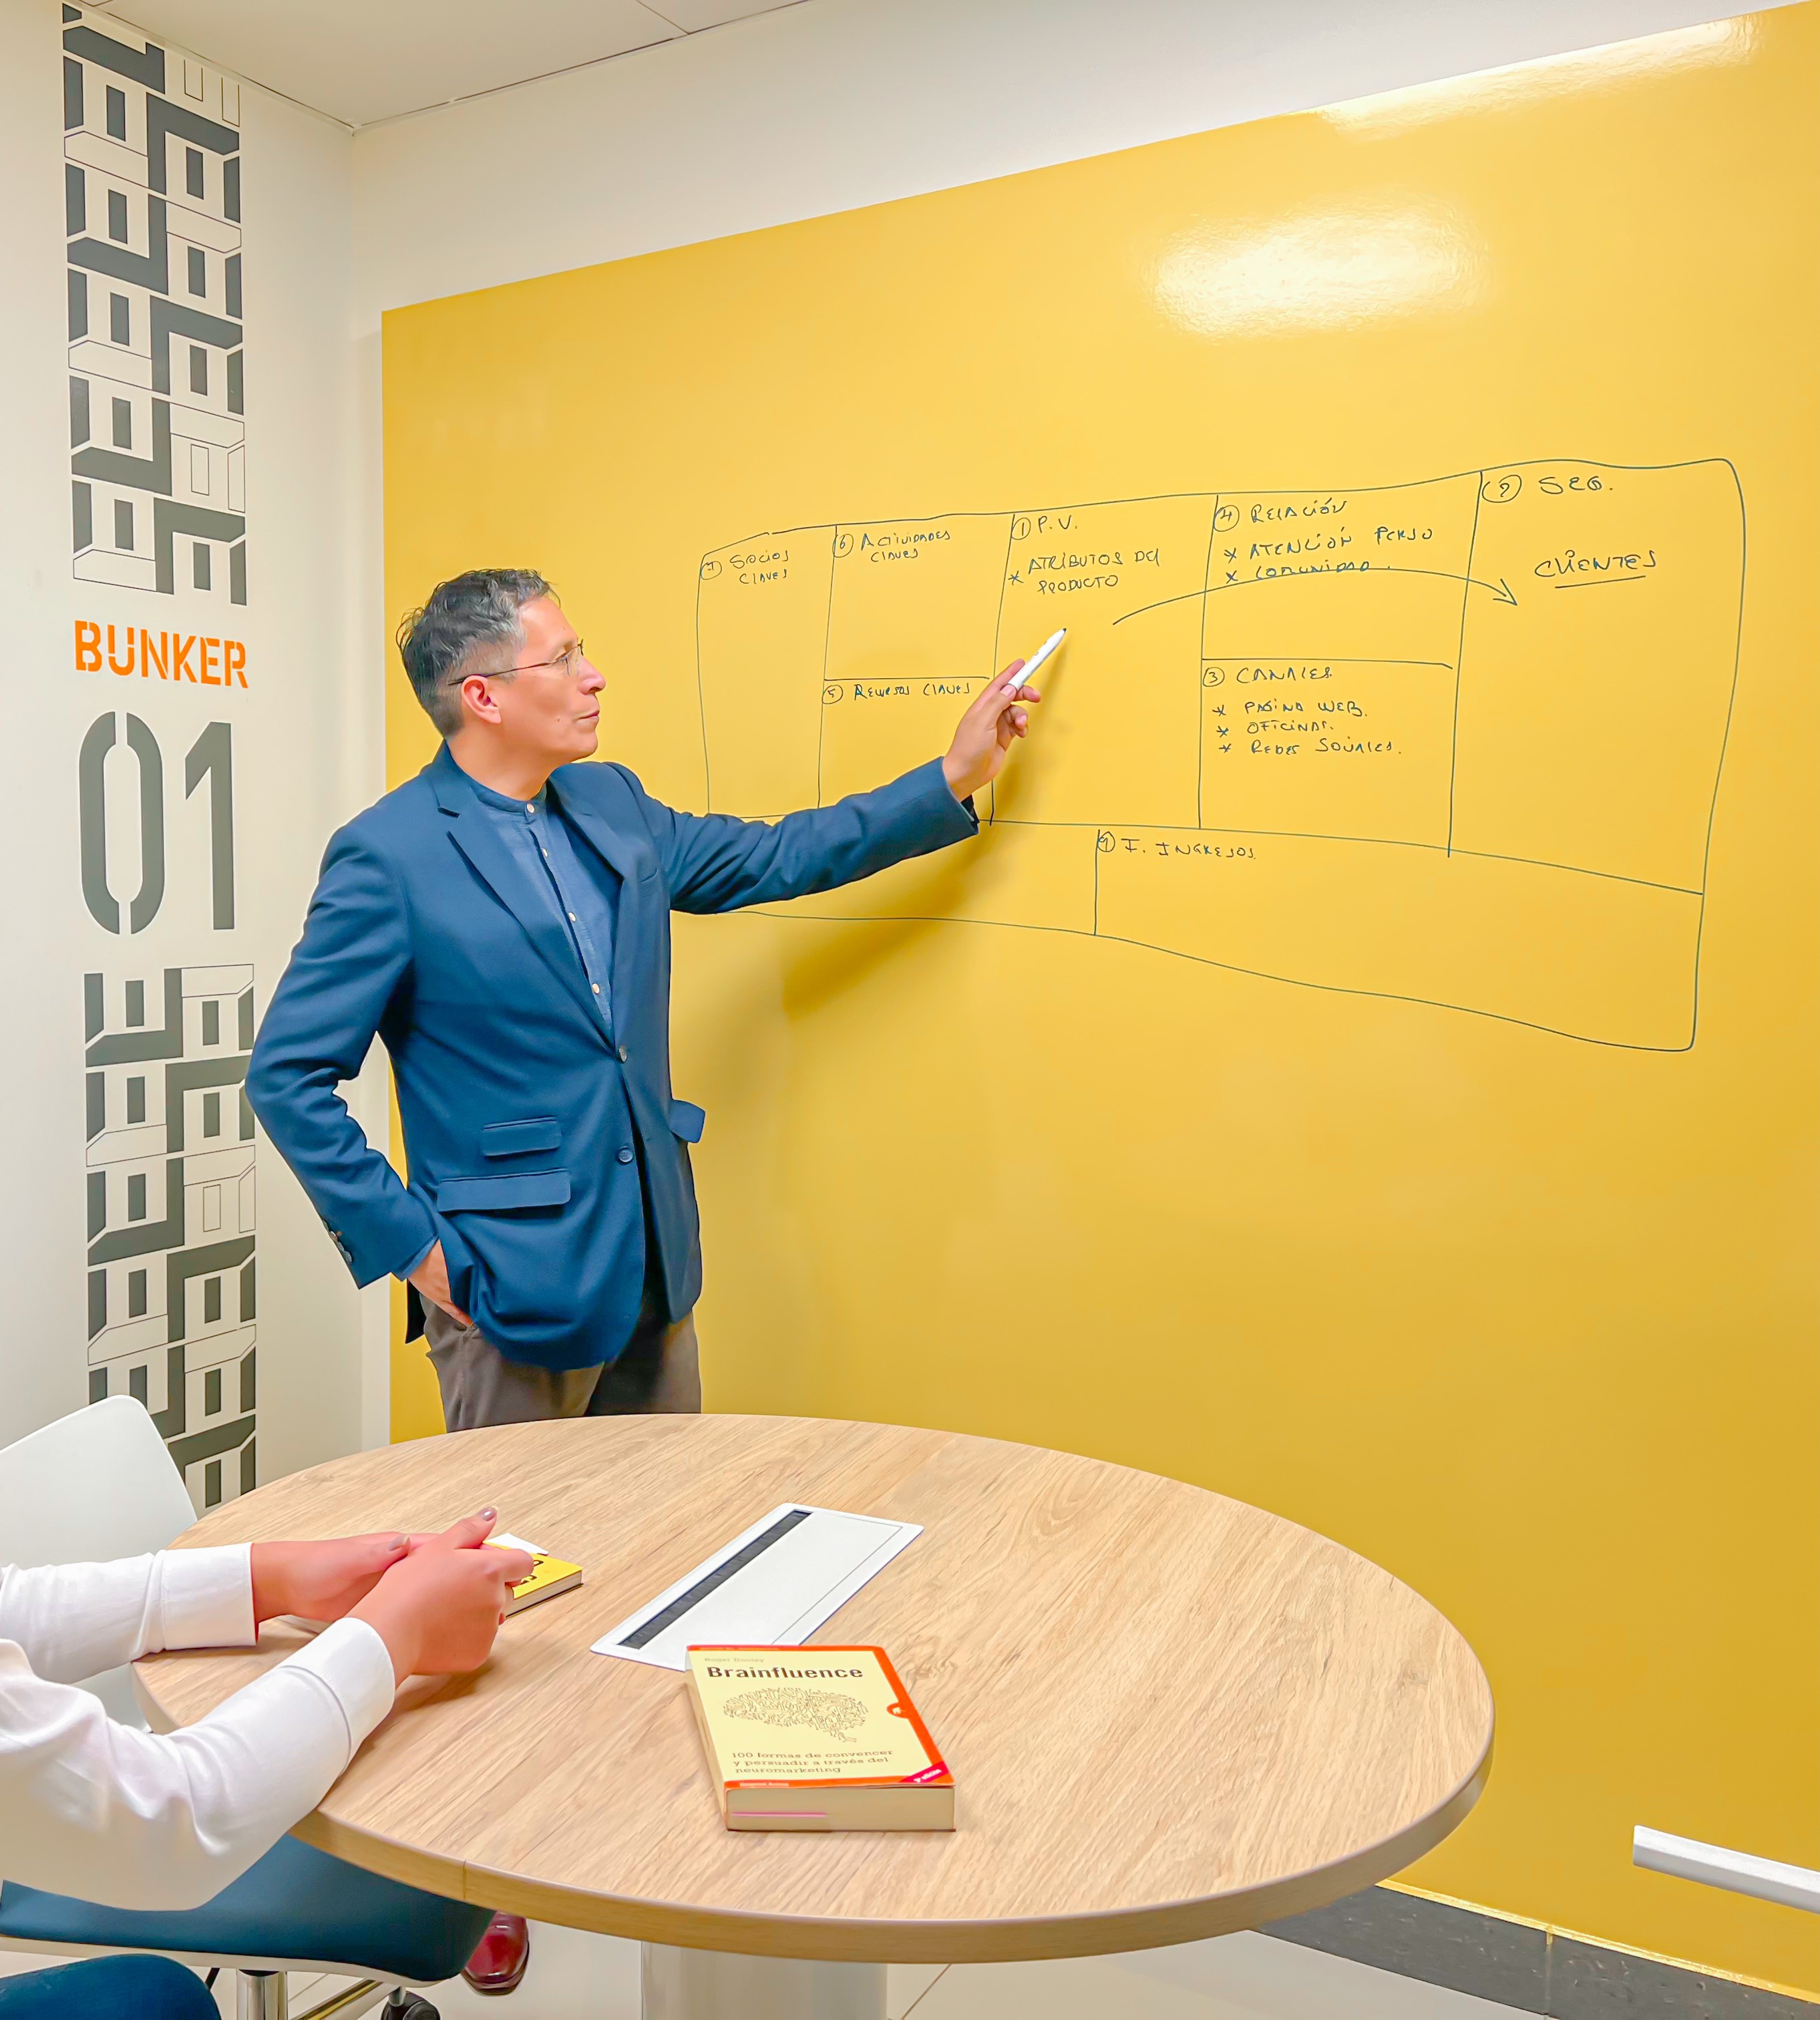 BUNKER
01
7 SOCIOS
CLAVES
6 ACTIVIDADES
CLAVES
5 RECURSOS CLAVES
1 P.V.
* ATRIBUTOS DEL
PRODUCTO
4 RELACIÓN
* ATENCIÓN PERSO
* COMUNIDAD.
3 CANALES
* PAGINA WEB.
* OFICINAS.
* REDES SOCIALES.
2 SEG.
CLIENTES
9 I. INGRESOS
Roger Dooley
Brainfluence
100 formas de convencer
y persuadir a través del
neuromarketing